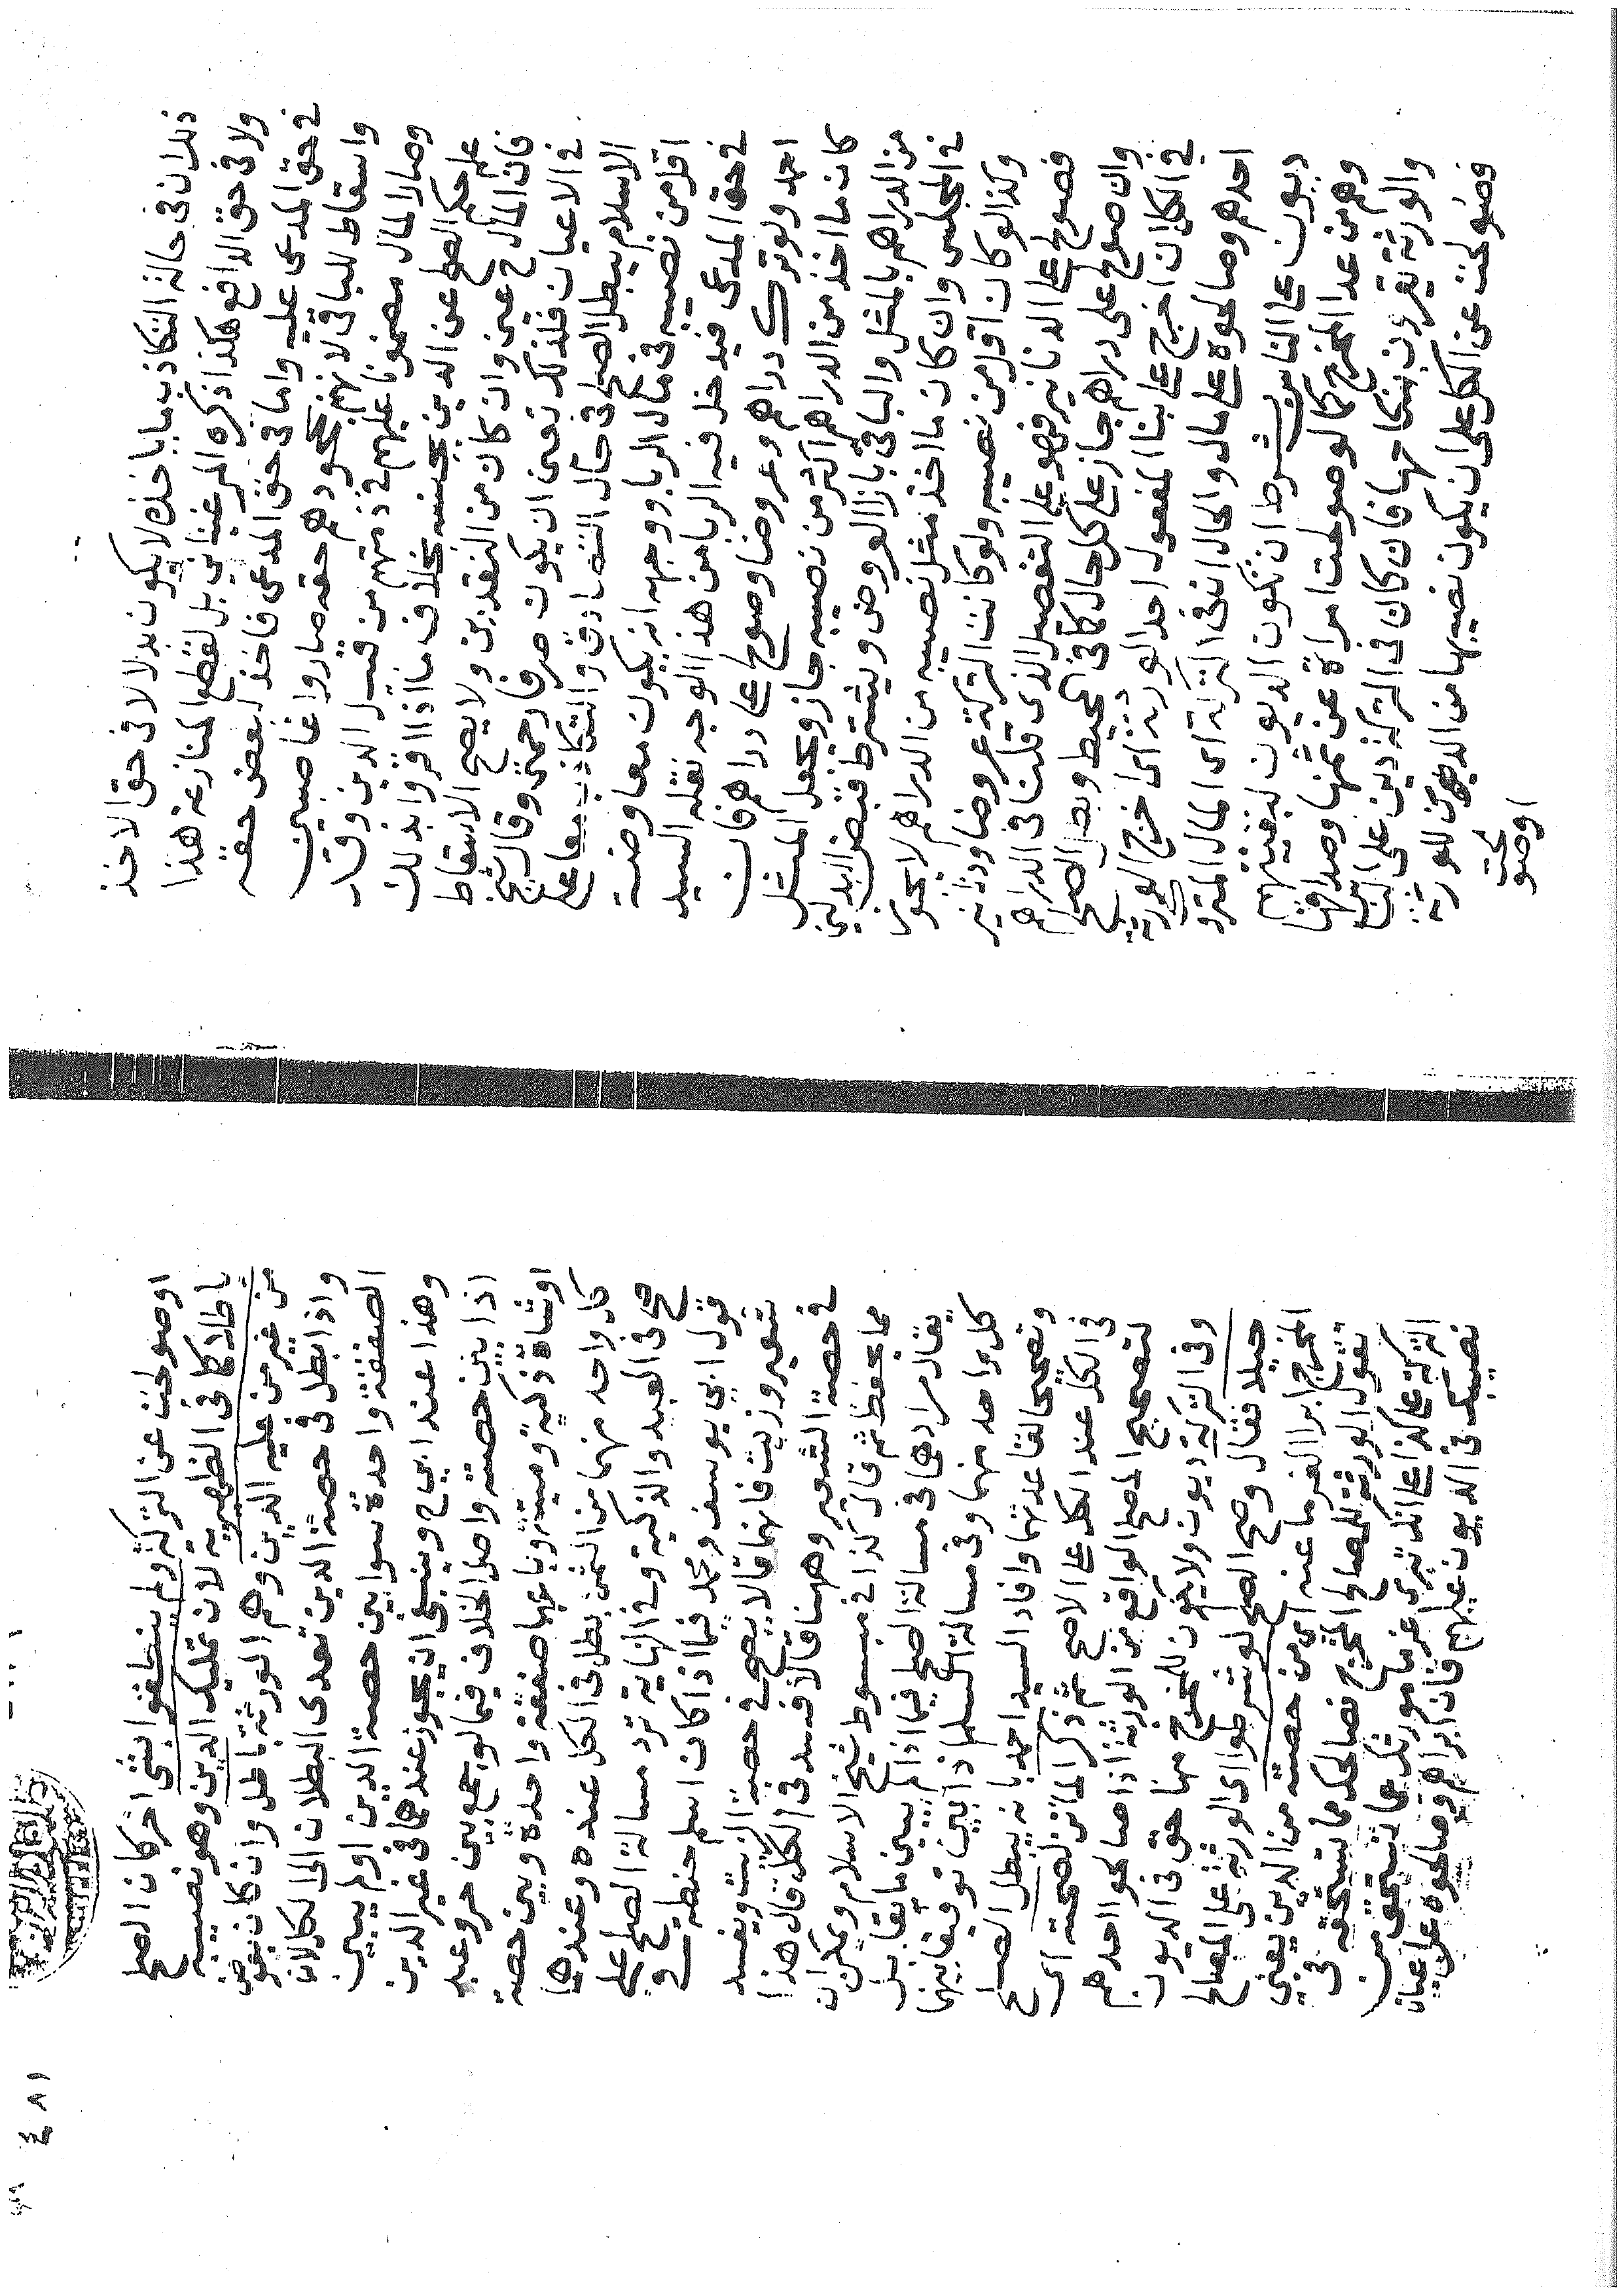 ذلك ان في حالة التكاذب ما ياخذه لا يكون بدلا لا في حق الاخذ
ولا في حق الدافع هكذا ذكره المرغيناني بل لقطع المنازعة هذا
في حق المدعى عليه واما في حق المدعى فاخذ لبعض حقه
واسقاط للباقي لانهم بجحودهم حقه صاروا غاصبين
وصار المال مضمونا عليهم في ذمتهم من قبيل الدين وقد
علم حكم الصلح عن الدين بجنسه بخلاف ما اذا اقروا بذلك
فان المال ح عين وان كان من النقدين ولا يصح الاسقاط
في الاعيان فلذلك تعين ان يكون صرفا رحمتي وقال شيخ
الاسلام يبطل الصلح في حال التصادق والتكاذب معا على
اقل من نصيبه في مال الربا ووجهه انه يكون معاوضة
في حق المدعى فيدخل فيه الربا من هذا الوجه نقله السيد
احمد ولو ترك دراهم وعروضا وصولح على دراهم فان
كان ما اخذ من الدراهم اكثر من نصيبه جاز ويجعل المثل
من الدراهم بالمثل والباقي بازا العروض ويشترط قبض البدلين
في المجلس وان كان ما اخذ مثل نصيبه من الدراهم لا يجوز
وكذا لو كان اقل من نصيبه ولو كانت التركة عروضا ودنانير
فصولح على الدنانير فهو على التفصيل الذى قلنا في الدراهم
وان صولح على دراهم جاز على كل حال كما في المحيط وبطل الصلح
في الكل ان اخرج على بنا المفعول احد الورثة اى اخرج الورثة
احدهم وصالحوه على مال والحال ان في التركة اى المال المتروك
ديون على الناس بشرط ان تكون الديون لبقيتهم
وهم من عدا المخرج كما لو صولحت امراة عن ثمنها وصداقها
والورثة يقرون بنكاحها فان كان في التركة دين على الناس
فصولحت عن الكل على ان يكون نصيبها من الدين للورثة
او صولحت
او صولحت عن التركة ولم ينطقوا بشى اخر كان الصلح
باطلا كما في الظهيرية لان تمليك الدين وهو نصيبه
من غير من عليه الدين وهم الورثة باطل وان كان بعوض
واذا بطل في حصة الدين تعدى البطلان الى الكل لان
الصفقة واحدة سوا بين حصة الدين او لم يبين
وهذا عند ابي ح وينبغي ان يجوز عندهما في غير الدين
اذا بين حصته واصل الخلاف فيما لو جمع بين حر وعبد
او شاة ذكية وميتة وباعهما صفقة واحدة وبين حصة
كل واحد منهما من الثمن بطل في الكل عنده وعندهما
صح في العبد والذكية وفي النهاية ترد مسالة الصلح على
قول ابي يوسف ومحمد فيما اذا كان اسلم حنطة في
شعير وزيت فانهما قالا يصح في حصة الزيت ويفسد
في حصة الشعير وههنا قالا فسد في الكل قال هذا
مما يحفظ ثم قال كذا في مبسوط شيخ الاسلام ويمكن ان
يقال مرادهما في مسالة الصلح فيما اذا لم يبين ما يقابل
كل واحد منهما وفي مسالة السلم اذا بين توفيقا بينهما
وتصحيحا لقاعدتهما وافاد السيد احمد بانه يبطل الصلح
في الكل عند الكل على الاصح ثم ذكر الماتن لصحته اى
لتصحيح الصلح الواقع من الورثة اذا صالحوا احدهم
وفي التركة ديون ولا يكون للمخرج منها حق في الديون
حيلا فقال وصح الصلح لو شرطوا اى الورثة على المصالح
المخرج ابرا الغرما عنه اى من حصته من الدين يعني
تقول الورثة للمصالح المخرج نصالحك مما تستحقه في
التركة على كذا على انك تبرى غرما مورثك مما تستحق من
نصيبك في الديون عليهم فان ابراهم وصالحوه على اعيان
٤٨١